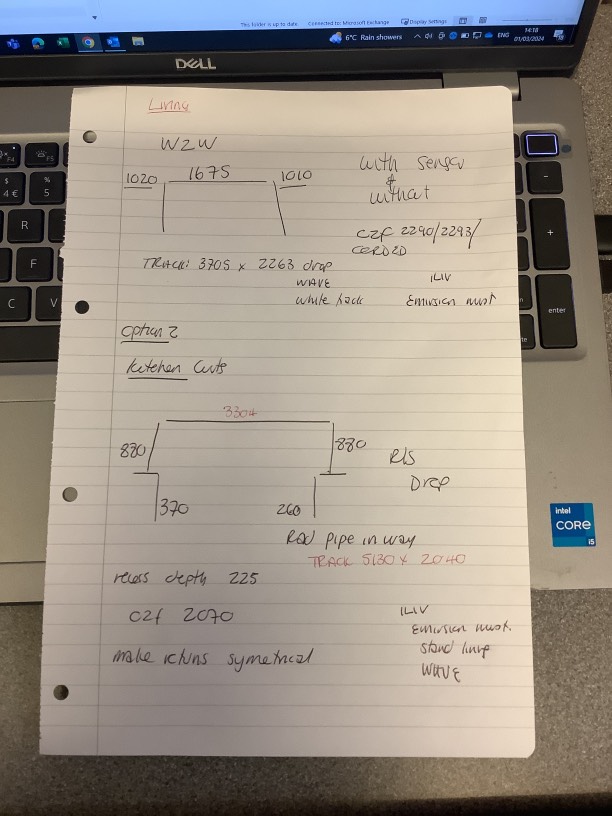 This folder is up to date. Connected to: Microsoft Exchange Display Settings
6°C Rain showers ENG 14:18 01/03/2024
DELL
Living
W2W
1020 1675 1010
with sensor
&
without
C2F 2290/2293/
TRACK: 3705 x 2263 drop
WAVE
ILIV
option 2
Kitchen Curts
3304
880 880
R/S
Drop
370 260
Rad pipe in way
TRACK 5130 x 2040
recess depth 225
C2f 2070
ILIV
make rtns symetrical
WAVE
F4
F5
$
4 €
%
5
R
F
C
V
-
+
enter
intel
CORE
i5